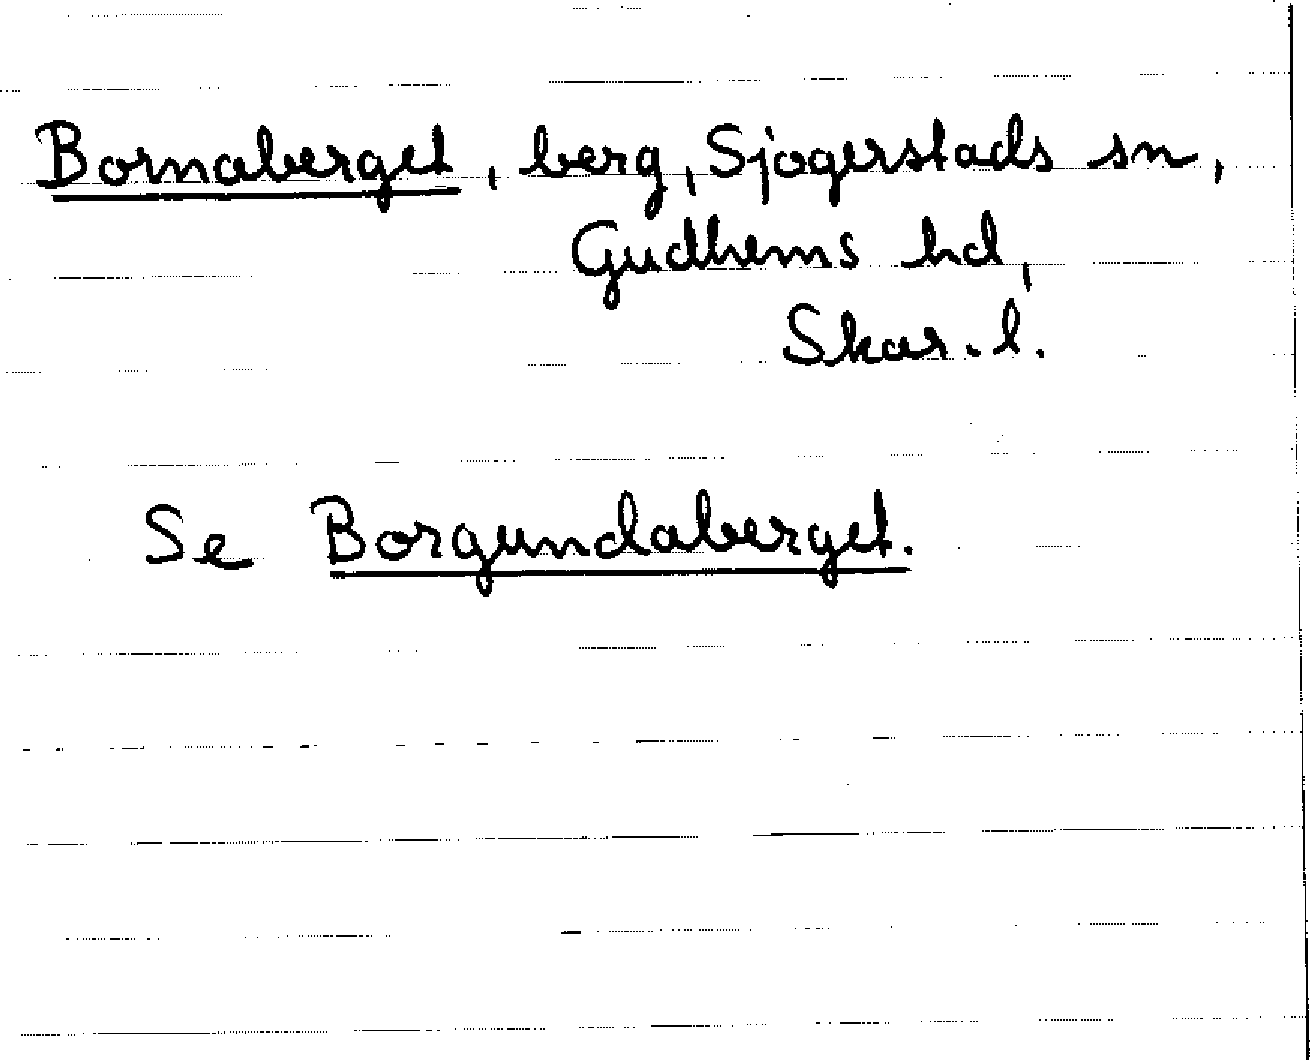 Bornaberget, berg, Sjogerstads sn,
Gudhems hd,
Skar. l.
Se Borgundaberget.